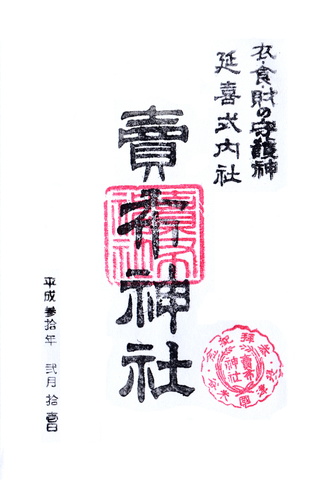 衣・食・財の守護神
延喜式内社
賣布神社
平成参拾年 弐月 拾壹日
賣布
神社